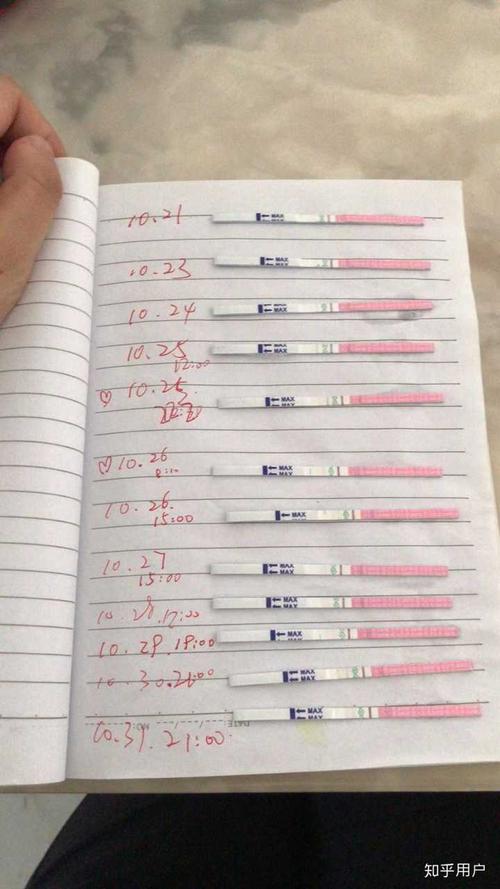 10.21
← MAX
← MAX
10.23
← MAX
← MAX
10.24
← MAX
← MAX
10.25
12:00
← MAX
← MAX
♡ 10.25
← MAX
← MAX
♡ 10.26
← MAX
← MAX
10.26.
15:00
← MAX
10.27
15:00
← MAX
← MAX
10.28.17:00
← MAX
← MAX
10.29.19:00
← MAX
← MAX
10.30.21:00
← MAX
← MAX
DATE
NO.
← MAX
← MAX
10.31.21:00
知乎用户